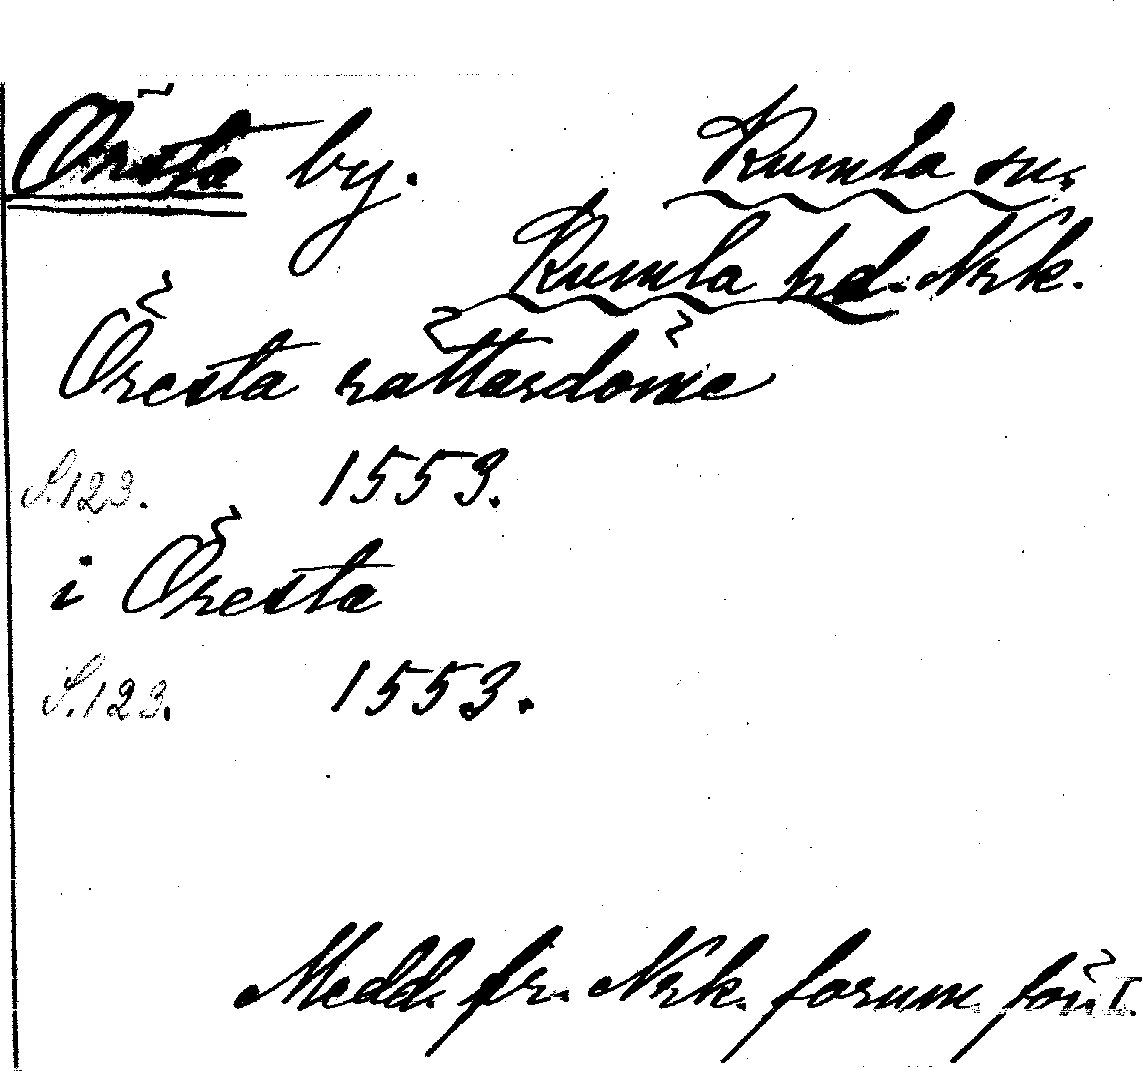 Örsta by. Kumla sn.
Kumla hd. Nrk.
Öresta rättardöme
S. 123. 1553.
i Öresta
S. 123. 1553.
Medd. fr. Nrk. fornm. för. I.